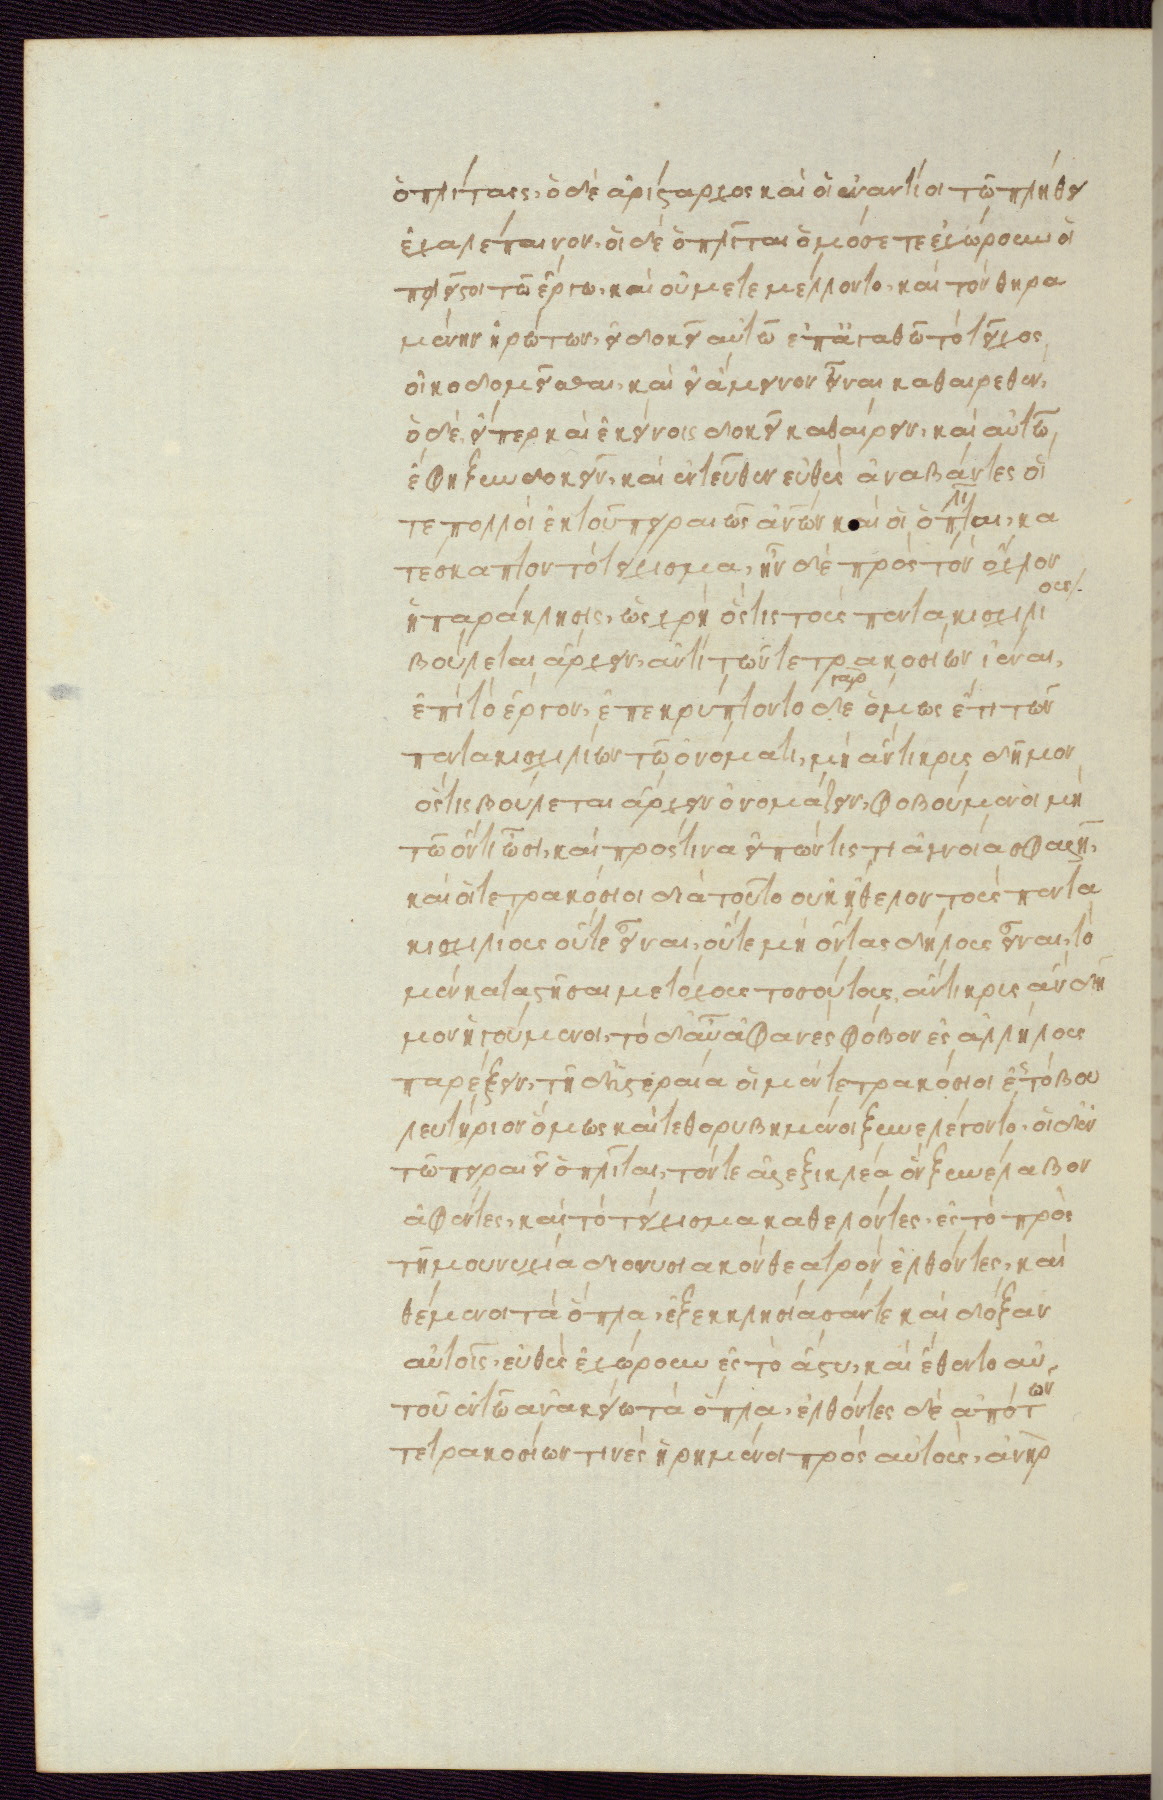 ὁπλίταις, ὁ δὲ ἀρίσταρχος καὶ οἱ ἐναντίοι τῶ πλήθει
ἐχαλέπαινον, οἱ δὲ ὁπλῖται ὁμόσε τε ἐχώρουν οἱ
πλεῖστοι τῶ ἔργω, καὶ οὐ μετεμέλλοντο, καὶ τὸν θηρα
μένην ἠρώτων, εἰ δοκεῖ αὐτῶ ἐπ' ἀγαθῶ τὸ τεῖχος
οἰκοδομεῖσθαι, καὶ εἰ ἄμεινον εἶναι καθαιρεθὲν,
ὁ δὲ, εἴπερ καὶ ἐκείνοις δοκεῖ καθαίρειν, καὶ αὐτῶ
ἔφη ξυνδοκεῖν, καὶ ἐντεῦθεν εὐθὺς ἀναβάντες οἵ
τε πολλοὶ ἐκ τοῦ πειραιῶς ἀν͞ων καὶ οἱ ὁπλῖται, κα
τέσκαπτον τὸ τείχισμα, ἦν δὲ πρὸς τὸν ὄχλον
ἡ παράκλησις, ὡς χρὴ ὅστις τοὺς πεντακισχιλίους
βούλεται ἄρχειν, ἀντὶ τῶν τετρακοσίων ἰέναι,
ἐπὶ τὸ ἔργον, ἐπεκρύπτοντο γὰρ δὲ ὅμως ἔτι τῶν
πεντακισχιλίων τῶ ὀνόματι, μὴ ἄντικρυς δῆμον
ὅστις βούλεται ἄρχειν ὀνομάζειν, φοβούμενοι μὴ
τῶ ὄντι ὦσι, καὶ πρός τινα εἰπών τίς τι ἀγνοία σφαλῇ,
καὶ οἱ τετρακόσιοι διὰ τοῦτο οὐκ ἤθελον τοὺς πεντα
κισχιλίους οὔτε εἶναι, οὔτε μὴ ὄντας δήλους εἶναι, τὸ
μὲν καταστῆσαι μετόχους τοσούτους, ἄντικρυς ἂν δῆ
μον ἡγούμενοι, τὸ δ' αὖ ἀφανὲς φόβον ἐς ἀλλήλους
παρέξειν, τῆ δ' ὑστεραία οἱ μὲν τετρακόσιοι ἐς τὸ βου
λευτήριον ὅμως καὶ τεθορυβημένοι ξυνελέγοντο, οἱ δ' ἐν
τῶ πειραιεῖ ὁπλῖται, τόν τε ἀλεξικλέα ὃν ξυνέλαβον
ἀφέντες, καὶ τὸ τείχισμα καθελόντες, ἐς τὸ πρὸς
τῆ μουνυχία διονυσιακὸν θέατρον ἐλθόντες, καὶ
θέμενοι τὰ ὅπλα, ἐξεκκλησίασάν τε καὶ δόξαν
αὐτοῖς, εὐθὺς ἐχώρουν ἐς τὸ ἄστυ, καὶ ἔθεντο αὐ
τοῦ ἐν τῶ ἀνακείω τὰ ὅπλα, ἐλθόντες δὲ ἀπὸ τῶν
τετρακοσίων τινὲς ἡρημένοι πρὸς αὐτοὺς, ἀνὴρ